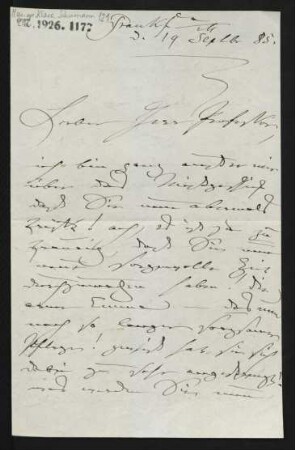 Clara Schumann
1926.1177
Frankf a/M
d. 19 Septb 85.
Lieber Herr Professor,
ich bin ganz außer mir
über das Mißgeschick
das Sie nun abermals
! ach, es ist ja zu
traurig, daß Sie nun
neue sorgenvolle Zeit
durchzumachen haben! die
arme Emma — das nun
nach so langer sorgsamer
Pflege! gewiß hat sie sich
dabei zu sehr angestrengt!
was werden Sie nun